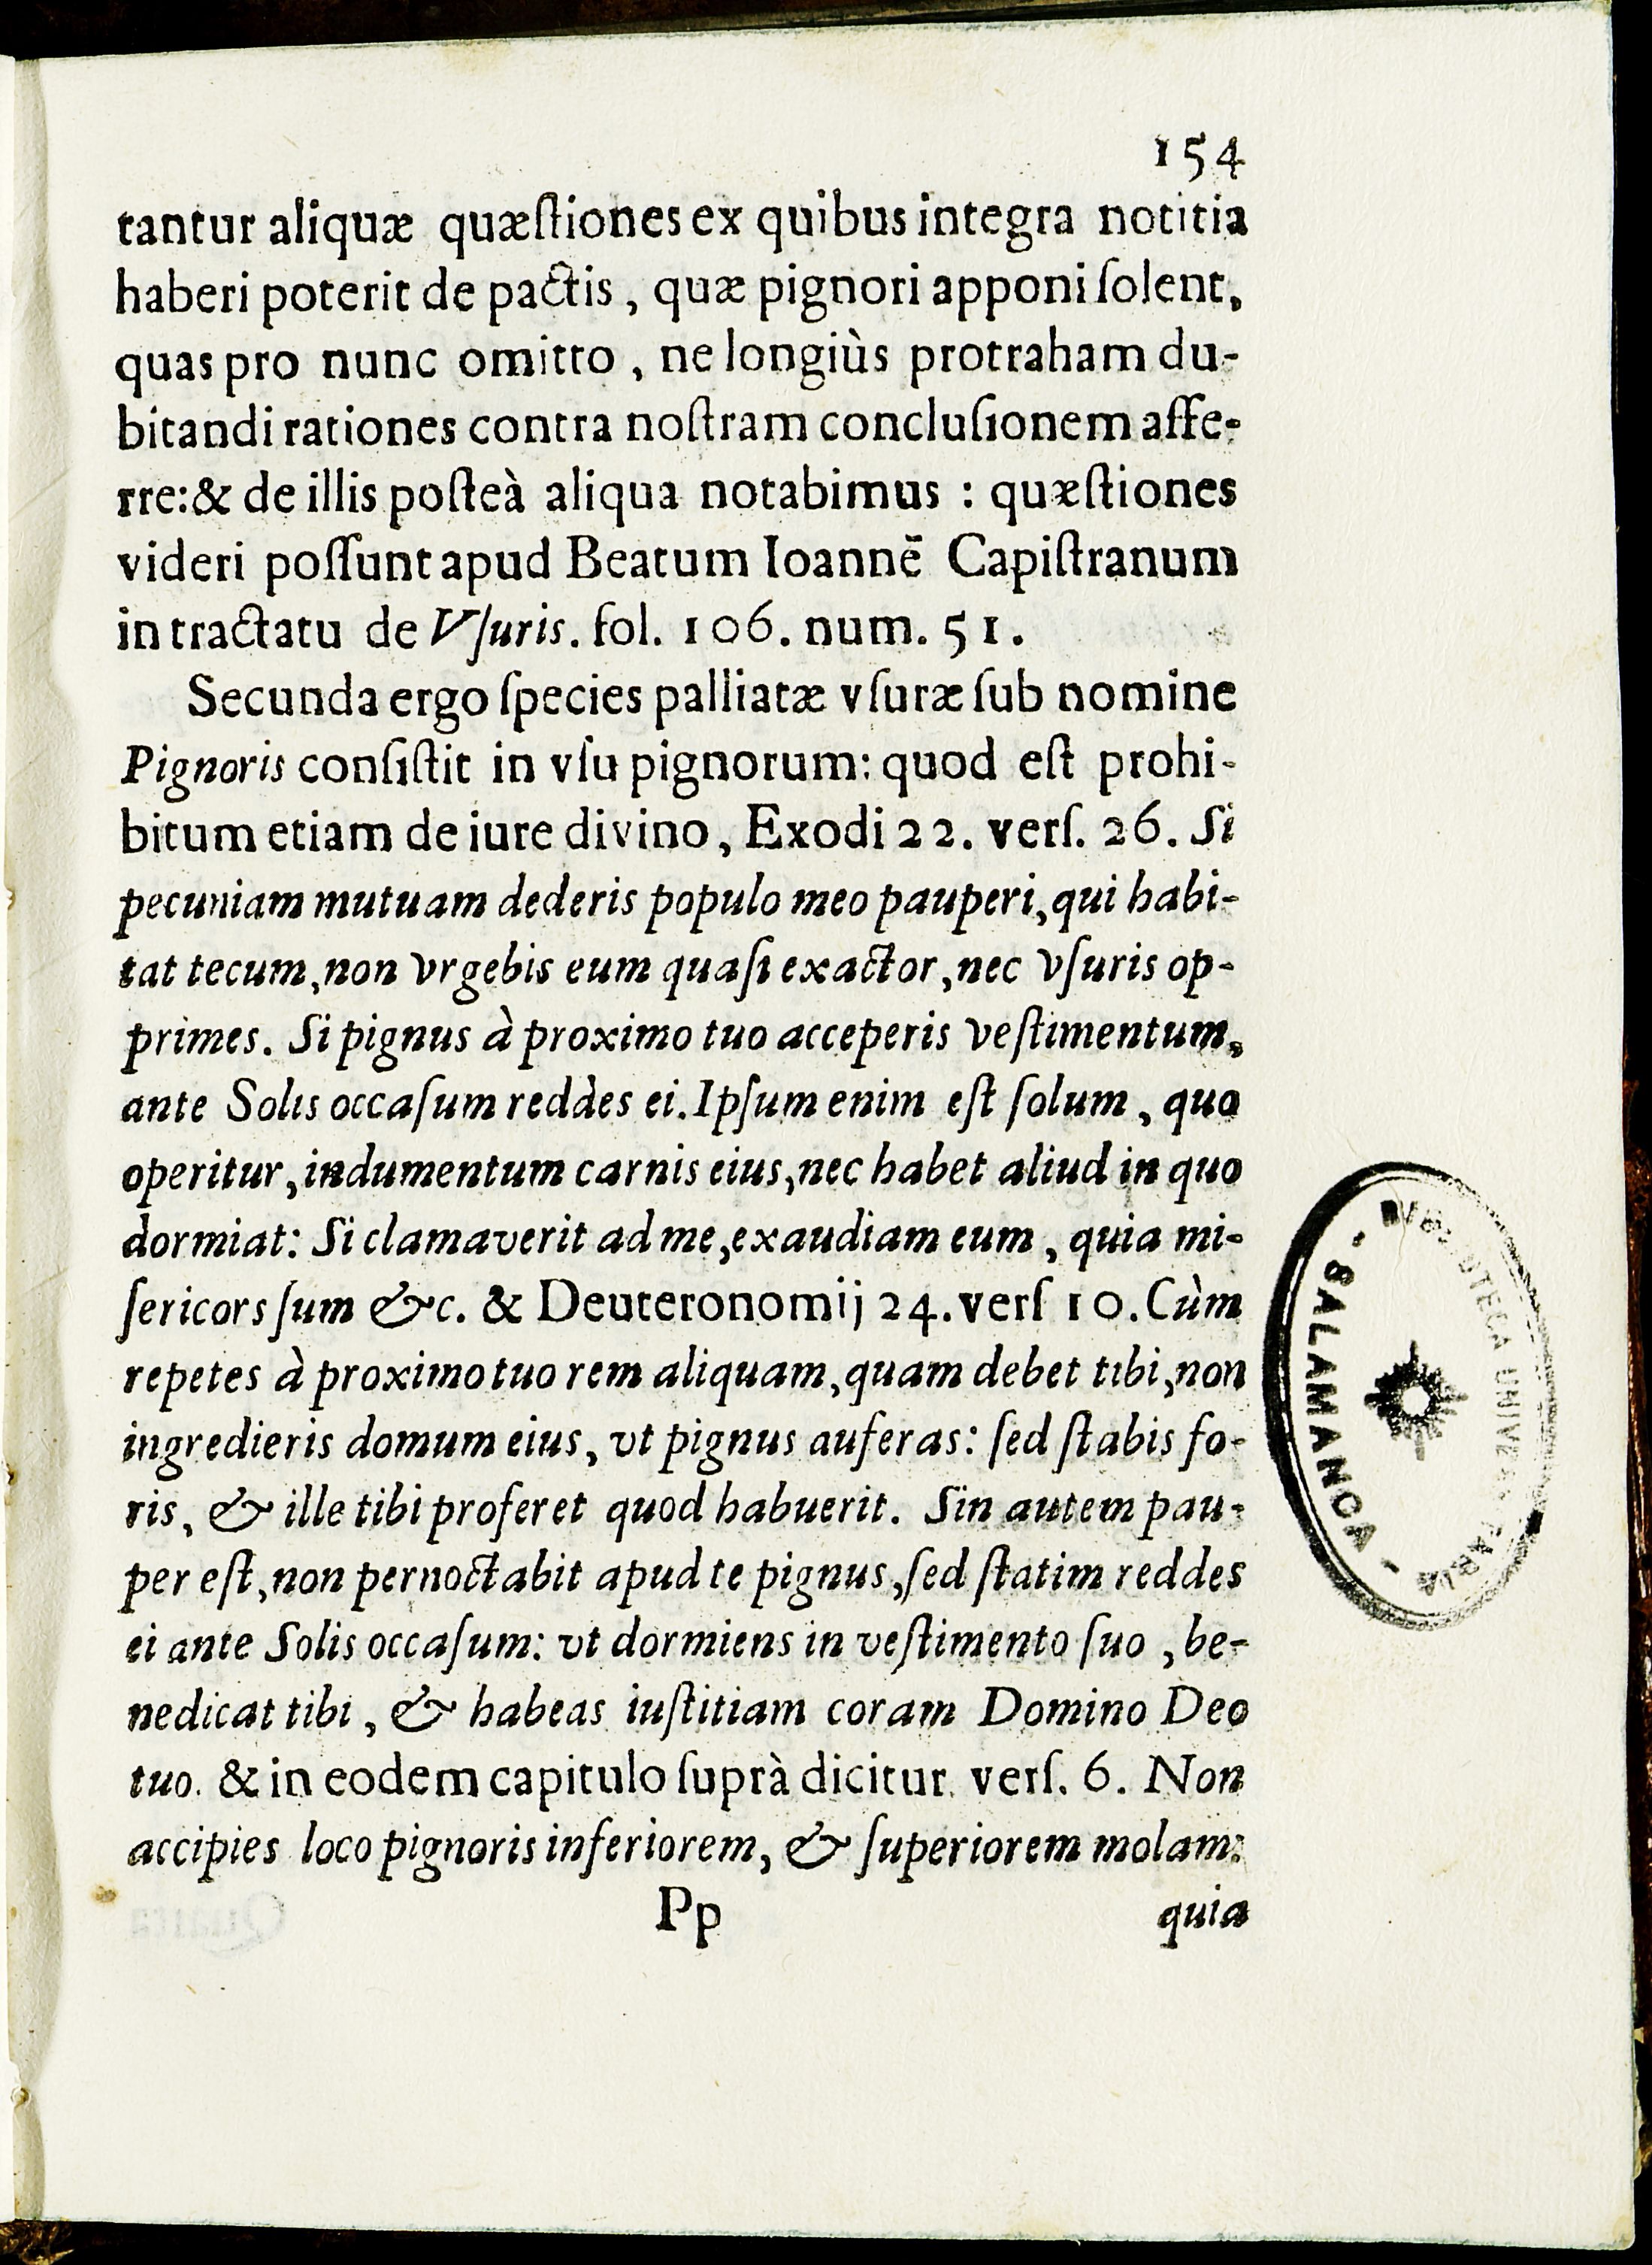 154
tantur aliquæ quæſtiones ex quibus integra notitia
haberi poterit de pactis, quæ pignori apponi ſolent,
quas pro nunc omitto, ne longiùs protraham du-
bitandi rationes contra noſtram concluſionem affe-
rre: & de illis poſteà aliqua notabimus : quæſtiones
videri poſſunt apud Beatum Ioannē Capiſtranum
in tractatu de Vſuris. fol. 106. num. 51.
Secunda ergo ſpecies palliatæ vſuræ ſub nomine
Pignoris conſiſtit in vſu pignorum: quod eſt prohi-
bitum etiam de iure divino, Exodi 22. verſ. 26. Si
pecuniam mutuam dederis populo meo pauperi, qui habi-
tat tecum, non vrgebis eum quaſi exactor, nec vſuris op-
primes. Si pignus à proximo tuo acceperis veſtimentum,
ante Solis occaſum reddes ei. Ipſum enim eſt ſolum, quo
operitur, indumentum carnis eius, nec habet aliud in quo
dormiat: Si clamaverit ad me, exaudiam eum, quia mi-
ſericors ſum &c. & Deuteronomij 24. verſ 10. Cùm
repetes à proximo tuo rem aliquam, quam debet tibi, non
ingredieris domum eius, vt pignus auferas: ſed ſtabis fo-
ris, & ille tibi proferet quod habuerit. Sin autem pau-
per eſt, non pernoctabit apud te pignus, ſed ſtatim reddes
ei ante Solis occaſum: vt dormiens in veſtimento ſuo, be-
nedicat tibi, & habeas iuſtitiam coram Domino Deo
tuo. & in eodem capitulo ſuprà dicitur. verſ. 6. Non
accipies loco pignoris inferiorem, & ſuperiorem molam:
Pp quia
- SALAMANCA -